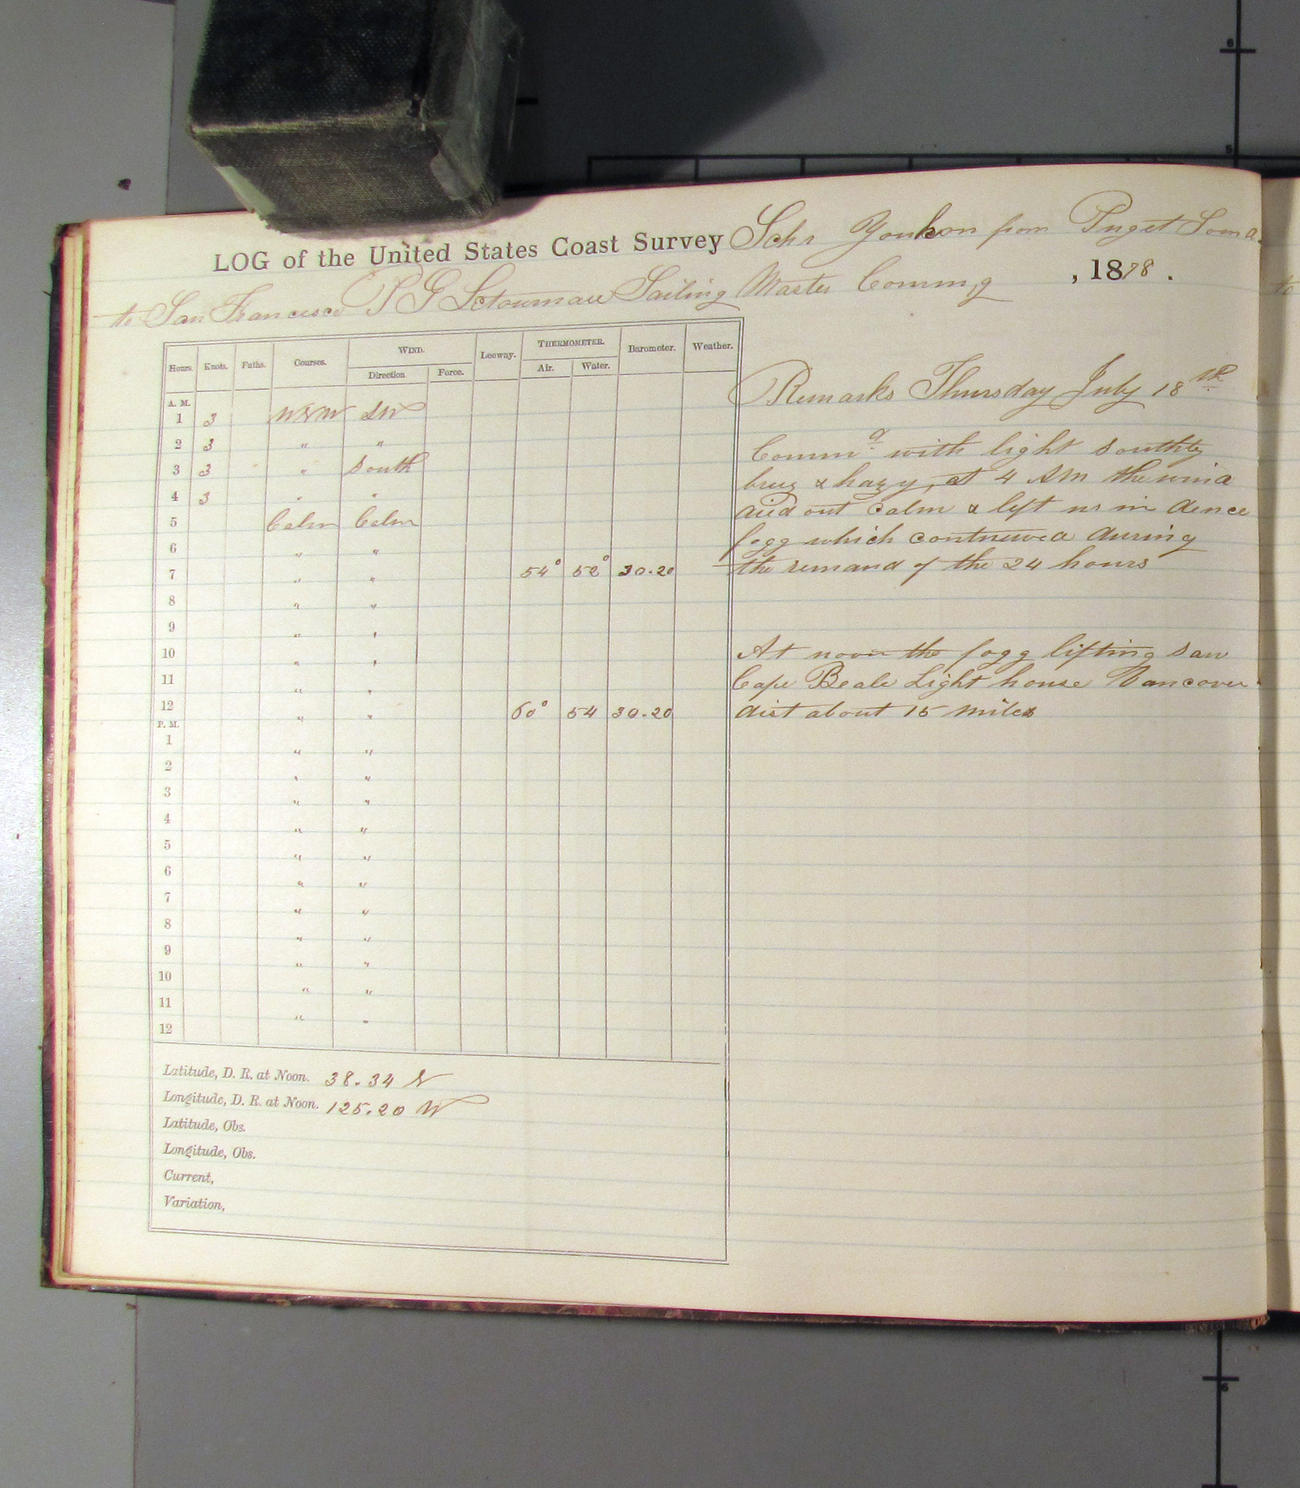 LOG of the United States Coast Survey Schr Youkon from Puget Sound
to San Francisco Sailing Master Comm,g , 1878.
Hours. Knots. Faths. Courses. WIND. Leeway. THERMOMETER. Barometer. Weather.
Direction Force. Air. Water.
Remarks Thursday July 18th
A. M.
1 3 WNW SW
2 3 " "
3 3 " South
4 3 " "
5 Calm Calm
6 " "
7 " " 54° 52° 30.20
8 " "
9 " "
10 " "
11 " "
12 " " 60° 54 30.20
P. M.
1 " "
2 " "
3 " "
4 " "
5 " "
6 " "
7 " "
8 " "
9 " "
10 " "
11 " "
12
Comm,d with light southly
breez & hazy, at 4 AM the wind
died out calm & left us in dence
fogg which contnewed during
the remand of the 24 hours
At noon the fogg lifting saw
Cape Beale Light house Vancover
dist about 15 miles
Latitude, D. R. at Noon. 38.34 N
Longitude, D. R. at Noon. 125.20 W
Latitude, Obs.
Longitude, Obs.
Current,
Variation,
to
6
5
6